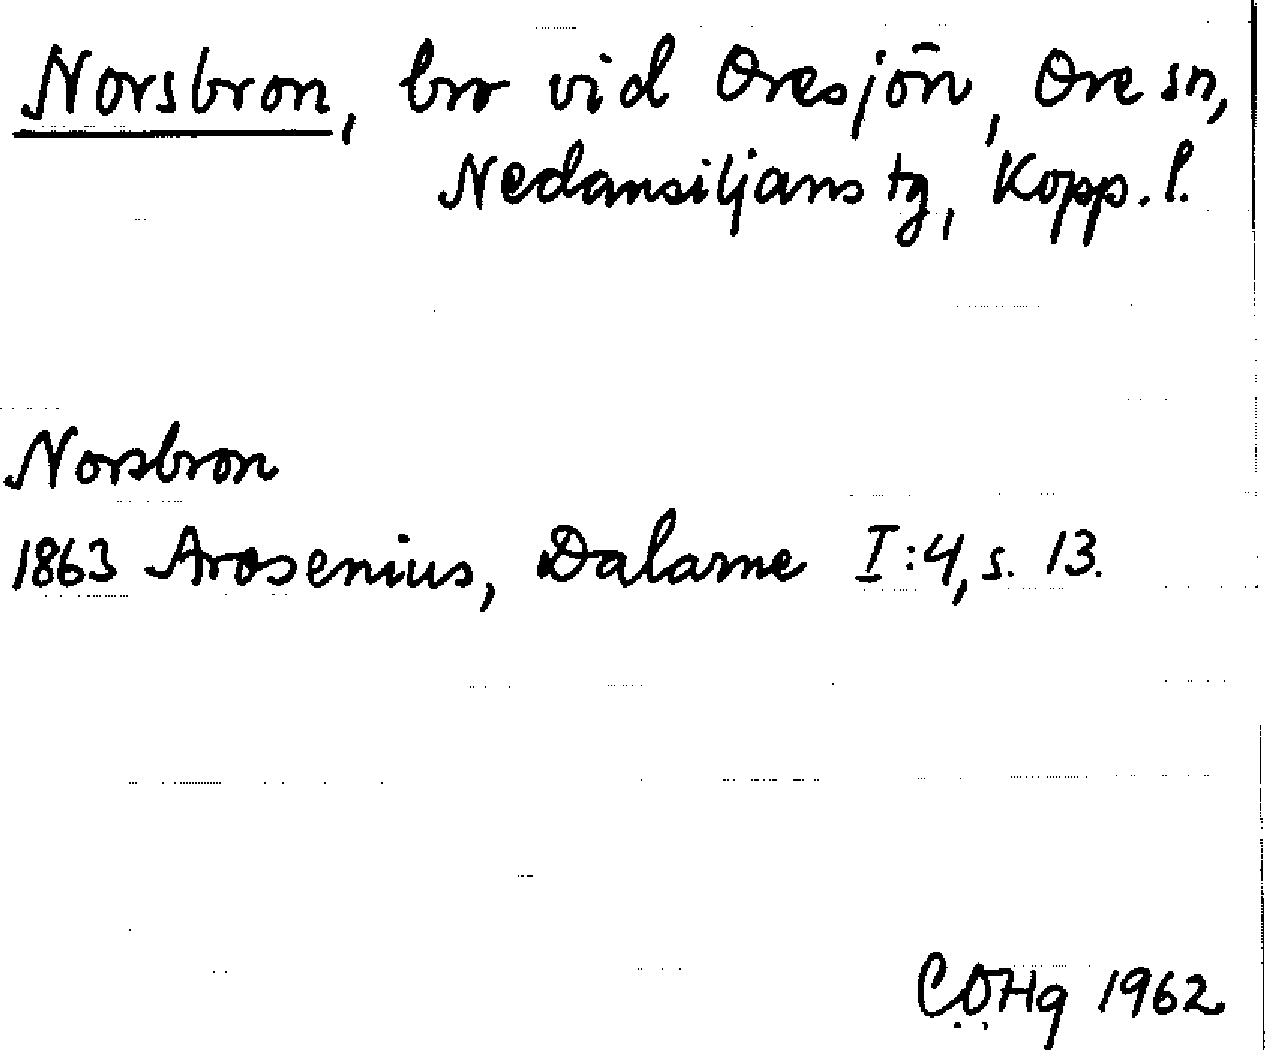 Norsbron, bro vid Oresjön, Ore sn,
Nedansiljans tg, Kopp. l.
Norsbron
1863 Arosenius, Dalarne I:4, s. 13.
COHg 1962